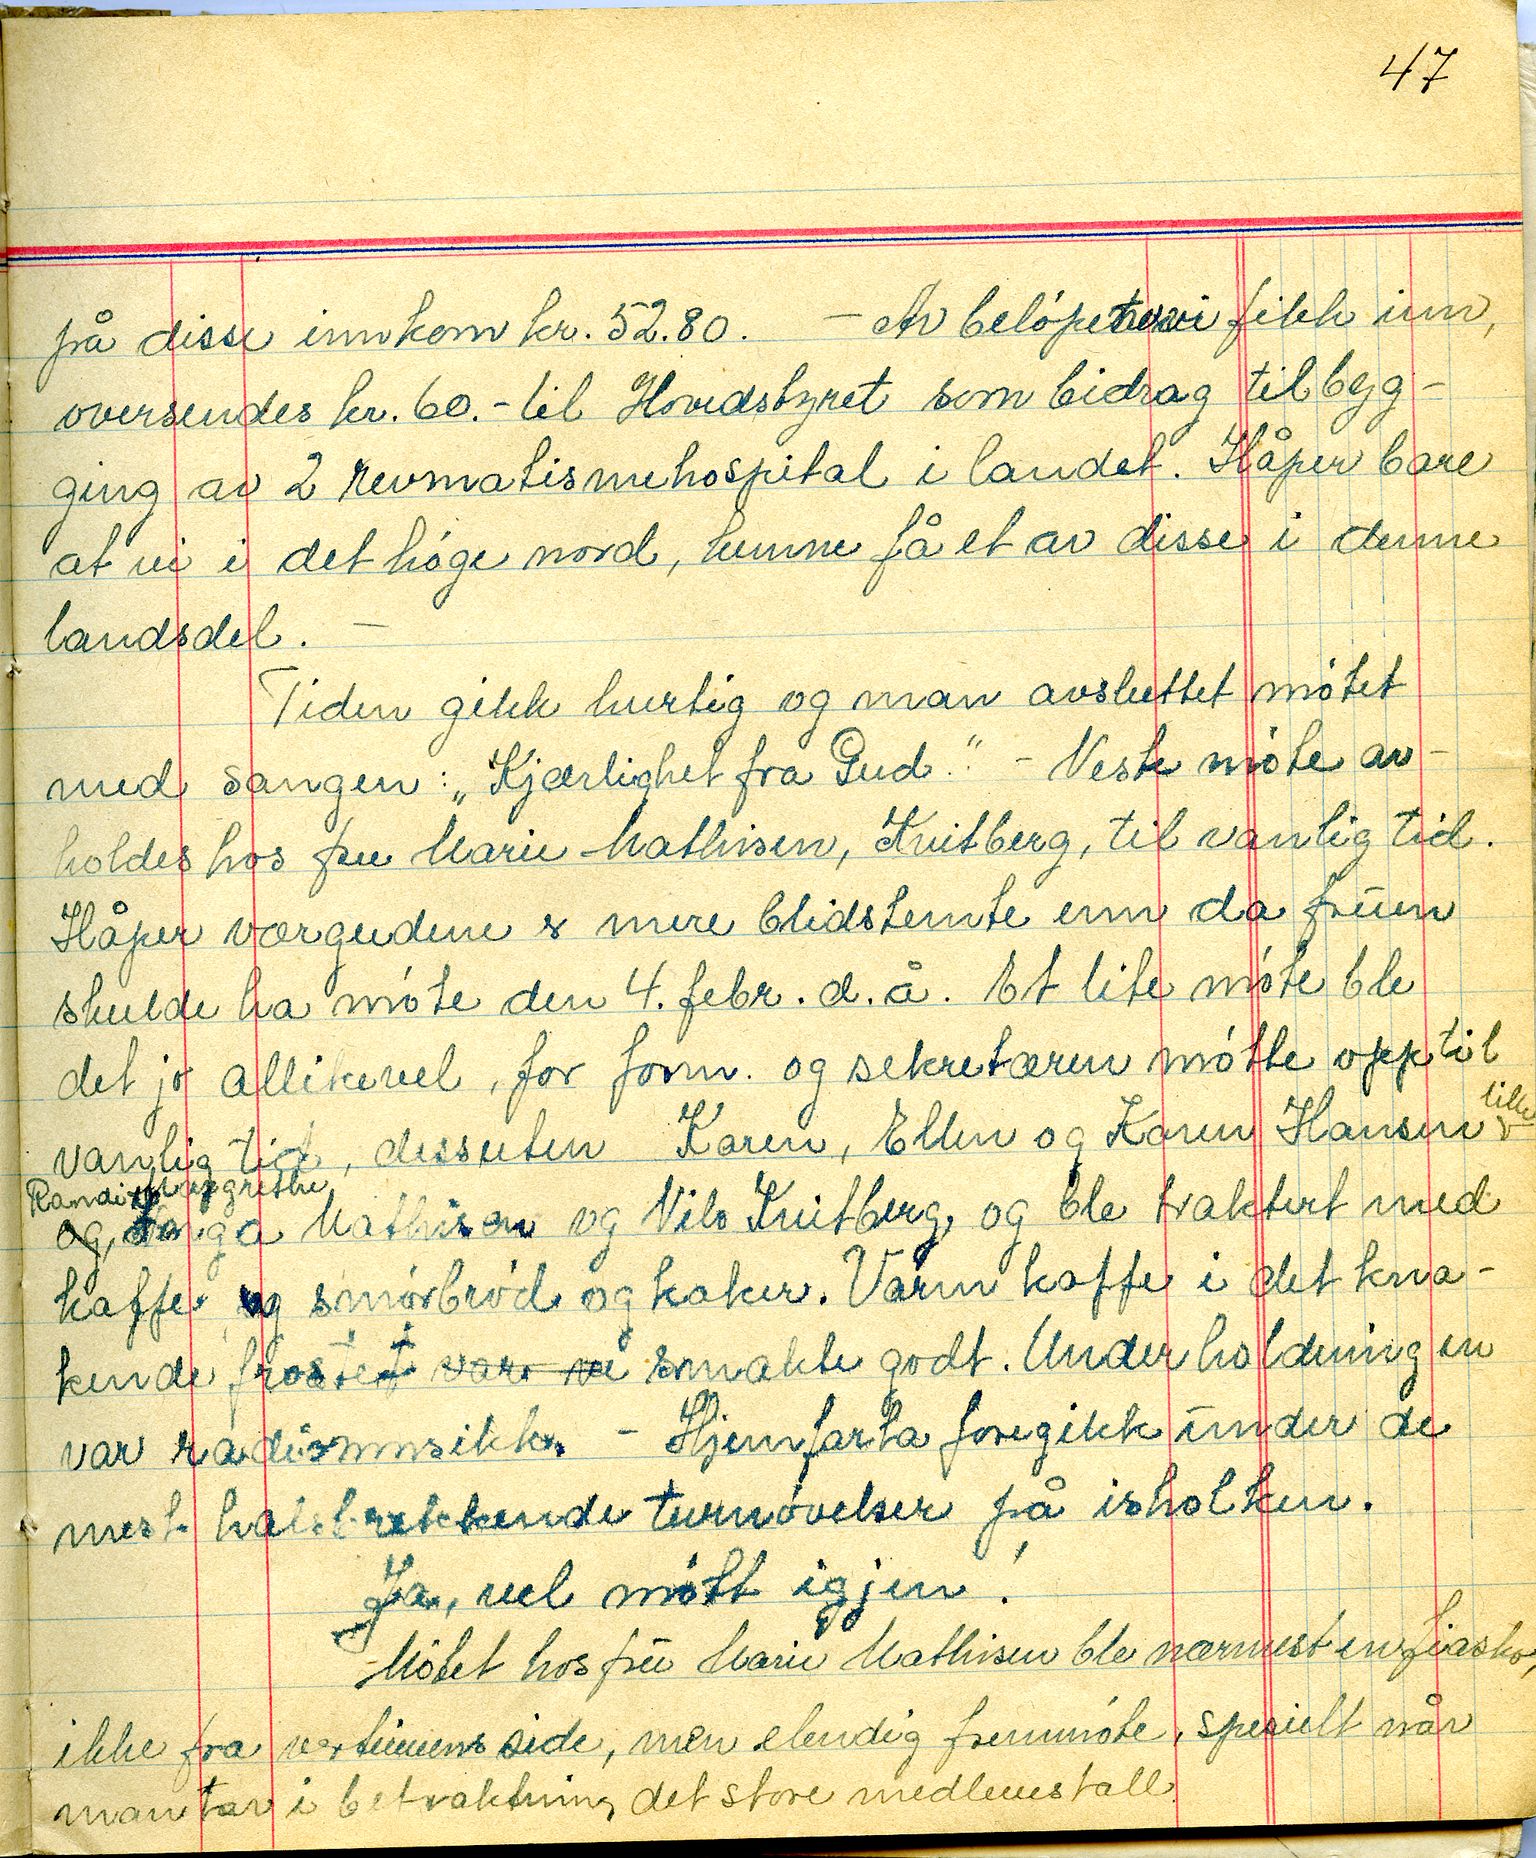 47
på disse innkom kr. 52.80. — Av beløpet vi fikk inn,
oversendes kr. 60.- til Hovedstyret som bidrag til byg-
ging av 2 revmatismehospital i landet. Håper bare
at vi i det høge nord, kunne få et av disse i denne
landsdel. —
Tiden gikk hurtig og man avsluttet møtet
med sangen: „Kjærlighet fra Gud." - Neste møte av-
holdes hos fru Marie Mathisen, Kvitberg, til vanlig tid.
Håper værgudene er mere blidstemte enn da fruen
skulde ha møte den 4. febr. d.å. Et lite møte ble
det jo allikevel, for form. og sekretæren møtte opp til
lille
vanlig tid, dessuten Karen, Ellen og Karen Hansen
Randi Margrethe
og, Inga Mathisen og Nils Kvitberg, og ble traktert med
kaffe og smørbrød og kaker. Varm kaffe i det kna-
kende frostet var ve smakte godt. Underholdningen
var radiomusikk. - Hjemfarta foregikk under de
mest halsbrekkende turnøvelser på isholken.
Ja, vel møtt igjen!
Møtet hos fru Marie Mathisen ble nærmest en fiasko,
ikke fra vertinnens side, men elendig fremmøte, spesielt når
man tar i betraktning det store medlemstall.